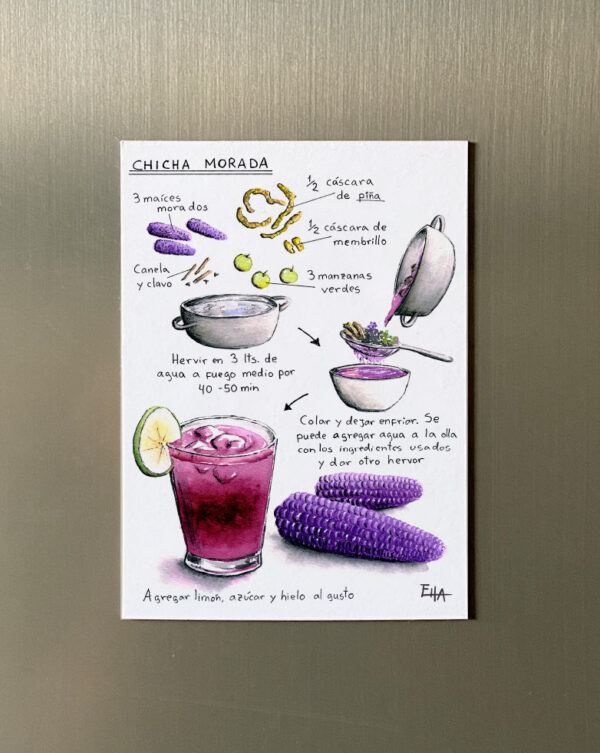 CHICHA MORADA
3 maíces
morados
1/2 cáscara
de piña
1/2 cáscara de
membrillo
Canela
y clavo
3 manzanas
verdes
Hervir en 3 lts. de
agua a fuego medio por
40 -50 min
Colar y dejar enfriar. Se
puede agregar agua a la olla
con los ingredientes usados
y dar otro hervor
Agregar limón, azúcar y hielo al gusto